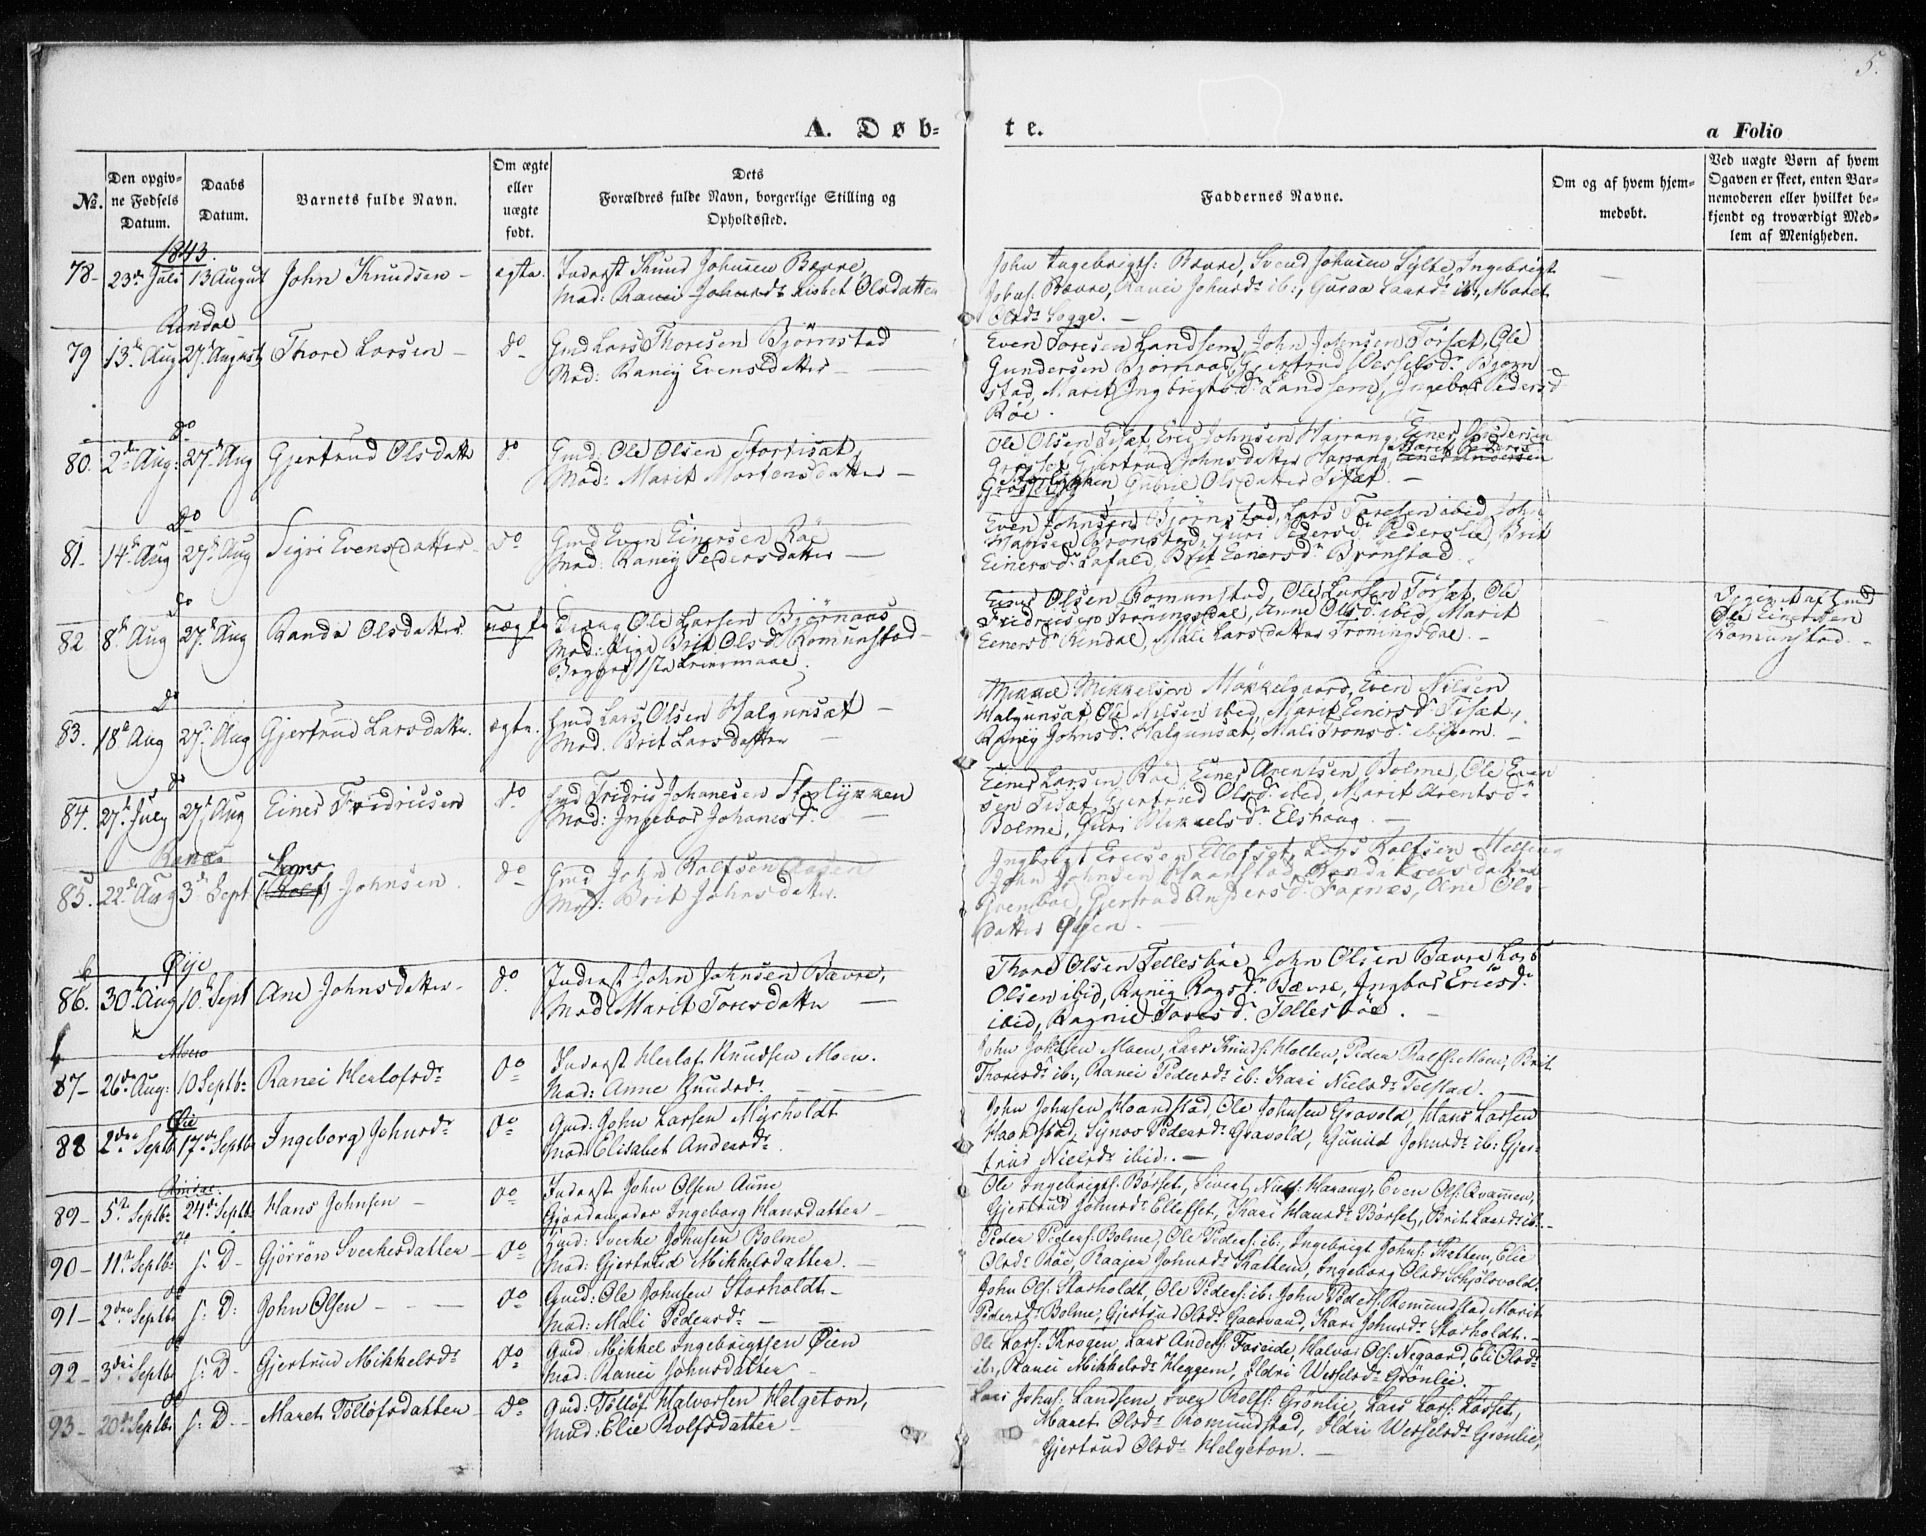 5.
A. Døb-
te.
a Folio
No.
Den opgiv-
ne Fødsels
Datum.
Daabs
Datum.
Barnets fulde Navn.
Om ægte
eller
uægte
født.
Dets
Forældres fulde Navn, borgerlige Stilling og
Opholdssted.
Faddernes Navne.
Om og af hvem hjem-
medøbt.
Ved uægte Børn af hvem
Opgaven er skeet, enten Bar-
nemoderen eller hvilket be-
kjendt og troværdigt Med-
lem af Menigheden.
1843.
78- 23de Juli 13 August John Knudsen - ægte. Inderst Knud Johnsen Bævre,
Mod: Ranei Johnsdr Lisbet Olsdatter
John Ingebrigts: Bævre, Svend Johnsen Sylte, Ingebrigt
Johns: Bævre, Ranei Johnsdr ib:, Guraa Larsdr ib:, Maret
Olsdr Sogge. -
Rindal
79 13de Aug 27de August Thore Larsen - do Gmd Lars Thoresen Bjørnstad
Mod: Raney Evensdatter -
Even Toresen Landsem, John Johnsen Torset, Ole
Gundersen Bjørnaas, Gjertrud Vesselsdr Bjørn-
stad, Marit Ingbrigtsdr Landsem, Ingebor Pedersd
Røe.
do
80. 2den Aug: 27de Aug Gjertrud Olsdatter do Gmd. Ole Olsen Stortisæt,
Mod: Marit Mortensdatter -
Ole Olsen Tisæt, Eric Johnsen Harrang, Einer Andersen
Grosset, Gjertrud Johnsdatter Harrang, Marit Pedersd
Einer Andersen
Olsdatter Tisæt. -
Do
81- 14de Aug 27de Aug Sigri Evensdatter - do Gmd Even Einersen Røe
Mod: Raney Pedersdatter -
Even Johnsen Bjørnstad, Lars Toresen ibid, John
Hansen Brønstad, Guri Pedersdr Pederslie, Brit
Einersdr Løfald, Brit Einersdr Brønstad.
Do
82 8de Aug 27de Aug Randi Olsdatter uægte Ole Larsen Bjørnaas
Mod: Pige Brit Olsdr Romunstad
Begges 1ste Leiermaal.
Einer Olsen Romunstad, Ole Larsen Torset, Ole
Fridricsen Troningsdal, Anne Olsdr ibid, Marit
Einersdr Rindal, Mali Larsdatter Troningsdal. -
Gmd
Ole Einersen
Romunstad. -
Do
83. 18de Aug 27de Aug Gjertrud Larsdatter. ægte. Gmd Lars Olsen Halgunsæt -
Mod. Brit Larsdatter -
Mikkel Mikkelsen Møkkelgaard, Even Nilsen
Halgunsæt, Ole Nilsen ibid, Marit Einersdr Tisæt,
Raney Johnsdr Halgunsæt, Mali Tronsdr ibidem. -
do
84. 27de July 27de Aug Einer Fridricsen do Gmd Fridric Johansen Storlykken
Mod: Ingebor Johansdr -
Einer Larsen Røe, Einer Arentsen Bolme, Ole Even
sen Tisæt, Gjertrud Olsdr ibid, Marit Arentsdr
Bolme, Guri Mikkelsdr Elshaug. -
Lars
85. 22de Aug 3de Sept (Rolf) Johnsen. do Gmd John Rolfsen
Mod: Brit Johnsdatter.
Ingbrigt Ericsen Ellefsæt, Lars Rolfsen Melling
John Johnsen Haanstad, Randi Ericsdatter
Gjertrud Andersdr Foxnes, Ane Ols-
datter Øyen. -
Øye
86. 30de Aug 10de Sept Ane Johnsdatter - do. Inderst John Johnsen Bævre,
Mod Marit Toresdatter -
Thore Olsen Tellesbøe, John Olsen Bævre, Lars
Olsen ibid, Raniy Larsdr Bævre, Ingbor Ericsdr
ibid, Ragnil Toresdr Tellesbøe. -
Moen
87- 26de Aug: 10 Septbr Ranei Herlofsdr do Inderst Herlof Knudsen Moen.
Mod: Anne Knudsdr. -
John Johnsen Moen, Lars Knuds: Holten, Peder Rolfs: Moen, Brit
Thoresdr ib:, Ranei Pedersdr ib: Kari Nielsdr Telstad.
Øie
88 2den Septb 17de Septb Ingeborg Johnsdr do Gmd: John Larsen Myrholdt
Mod: Elisabet Andersdr.
John Johnsen Haandstad, Ole Johnsen Gravold, Hans Larsen
Haandstad, Synøv Pedersdr Gravold, Gunild Johnsdr ib: Gjer-
trud Nielsdr ibid:. -
Rindal.
89- 5te Septbr 24de Septb Hans Johnsen - do Inderst John Olsen Aune
Gjordemoder Ingeborg Hansdatter -
Ole Ingebrigts: Børset, Sivert Niels: Harang, Even Ols: Qvammen,
Gjertrud Johnsdr Ellefset, Kari Hansdr Børset, Brit Larsdr ib. -
do
90- 11te Septbr s: D- Gjørrøn Sverkesdatter - do Gmd: Sverke Johnsen Bolme
Mod: Gjertrud Mikkelsdatter. -
Peder Peders: Bolme, Ole Peders: ib:, Ingebrigt Johns: Kattem, Elie
Olsdr Røe, Raajer Johnsdr Kattem, Ingeborg Olsdr Schjølsvold.
do
91- 2den Septbr s: D: John Olsen - - - do Gmd: Ole Johnsen Storholdt -
Mod: Mali Pedersdr - -
John Ols: Storholdt, Ole Peders: ib: John Peders: Romundstad, Marit
Pedersdr Bolme, Gjertrud Olsdr Gaarvand, Kari Johnsdr Storholdt. -
do
92- 3die Septbr s: D. Gjertrud Mikkelsdr do. Gmd: Mikkel Ingebrigtsen Øien
Mod: Ranei Johnsdatter -
Ole Lars: Krogen, Lars Anders: Foseide, Halvor Ols: Negaard, Eli Olsdr
ib:, Ranei Mikkelsdr Heggem, Ildri Wesselsdr Grønlie.
do
93- 20de Septbr s: D. - Maret Tølløfsdatter - do Gmd: Tølløf Halvorsen Helgeton,
Mod: Elie Rolfsdatter -
Lars Johns: Landsem, Sven Rolfs: Grønlie, Lars Lars: Torset,
Maret Olsdr Romundstad, Ildri Wesselsdr Grønlie,
Gjertrud Olsdr Helgeton. -